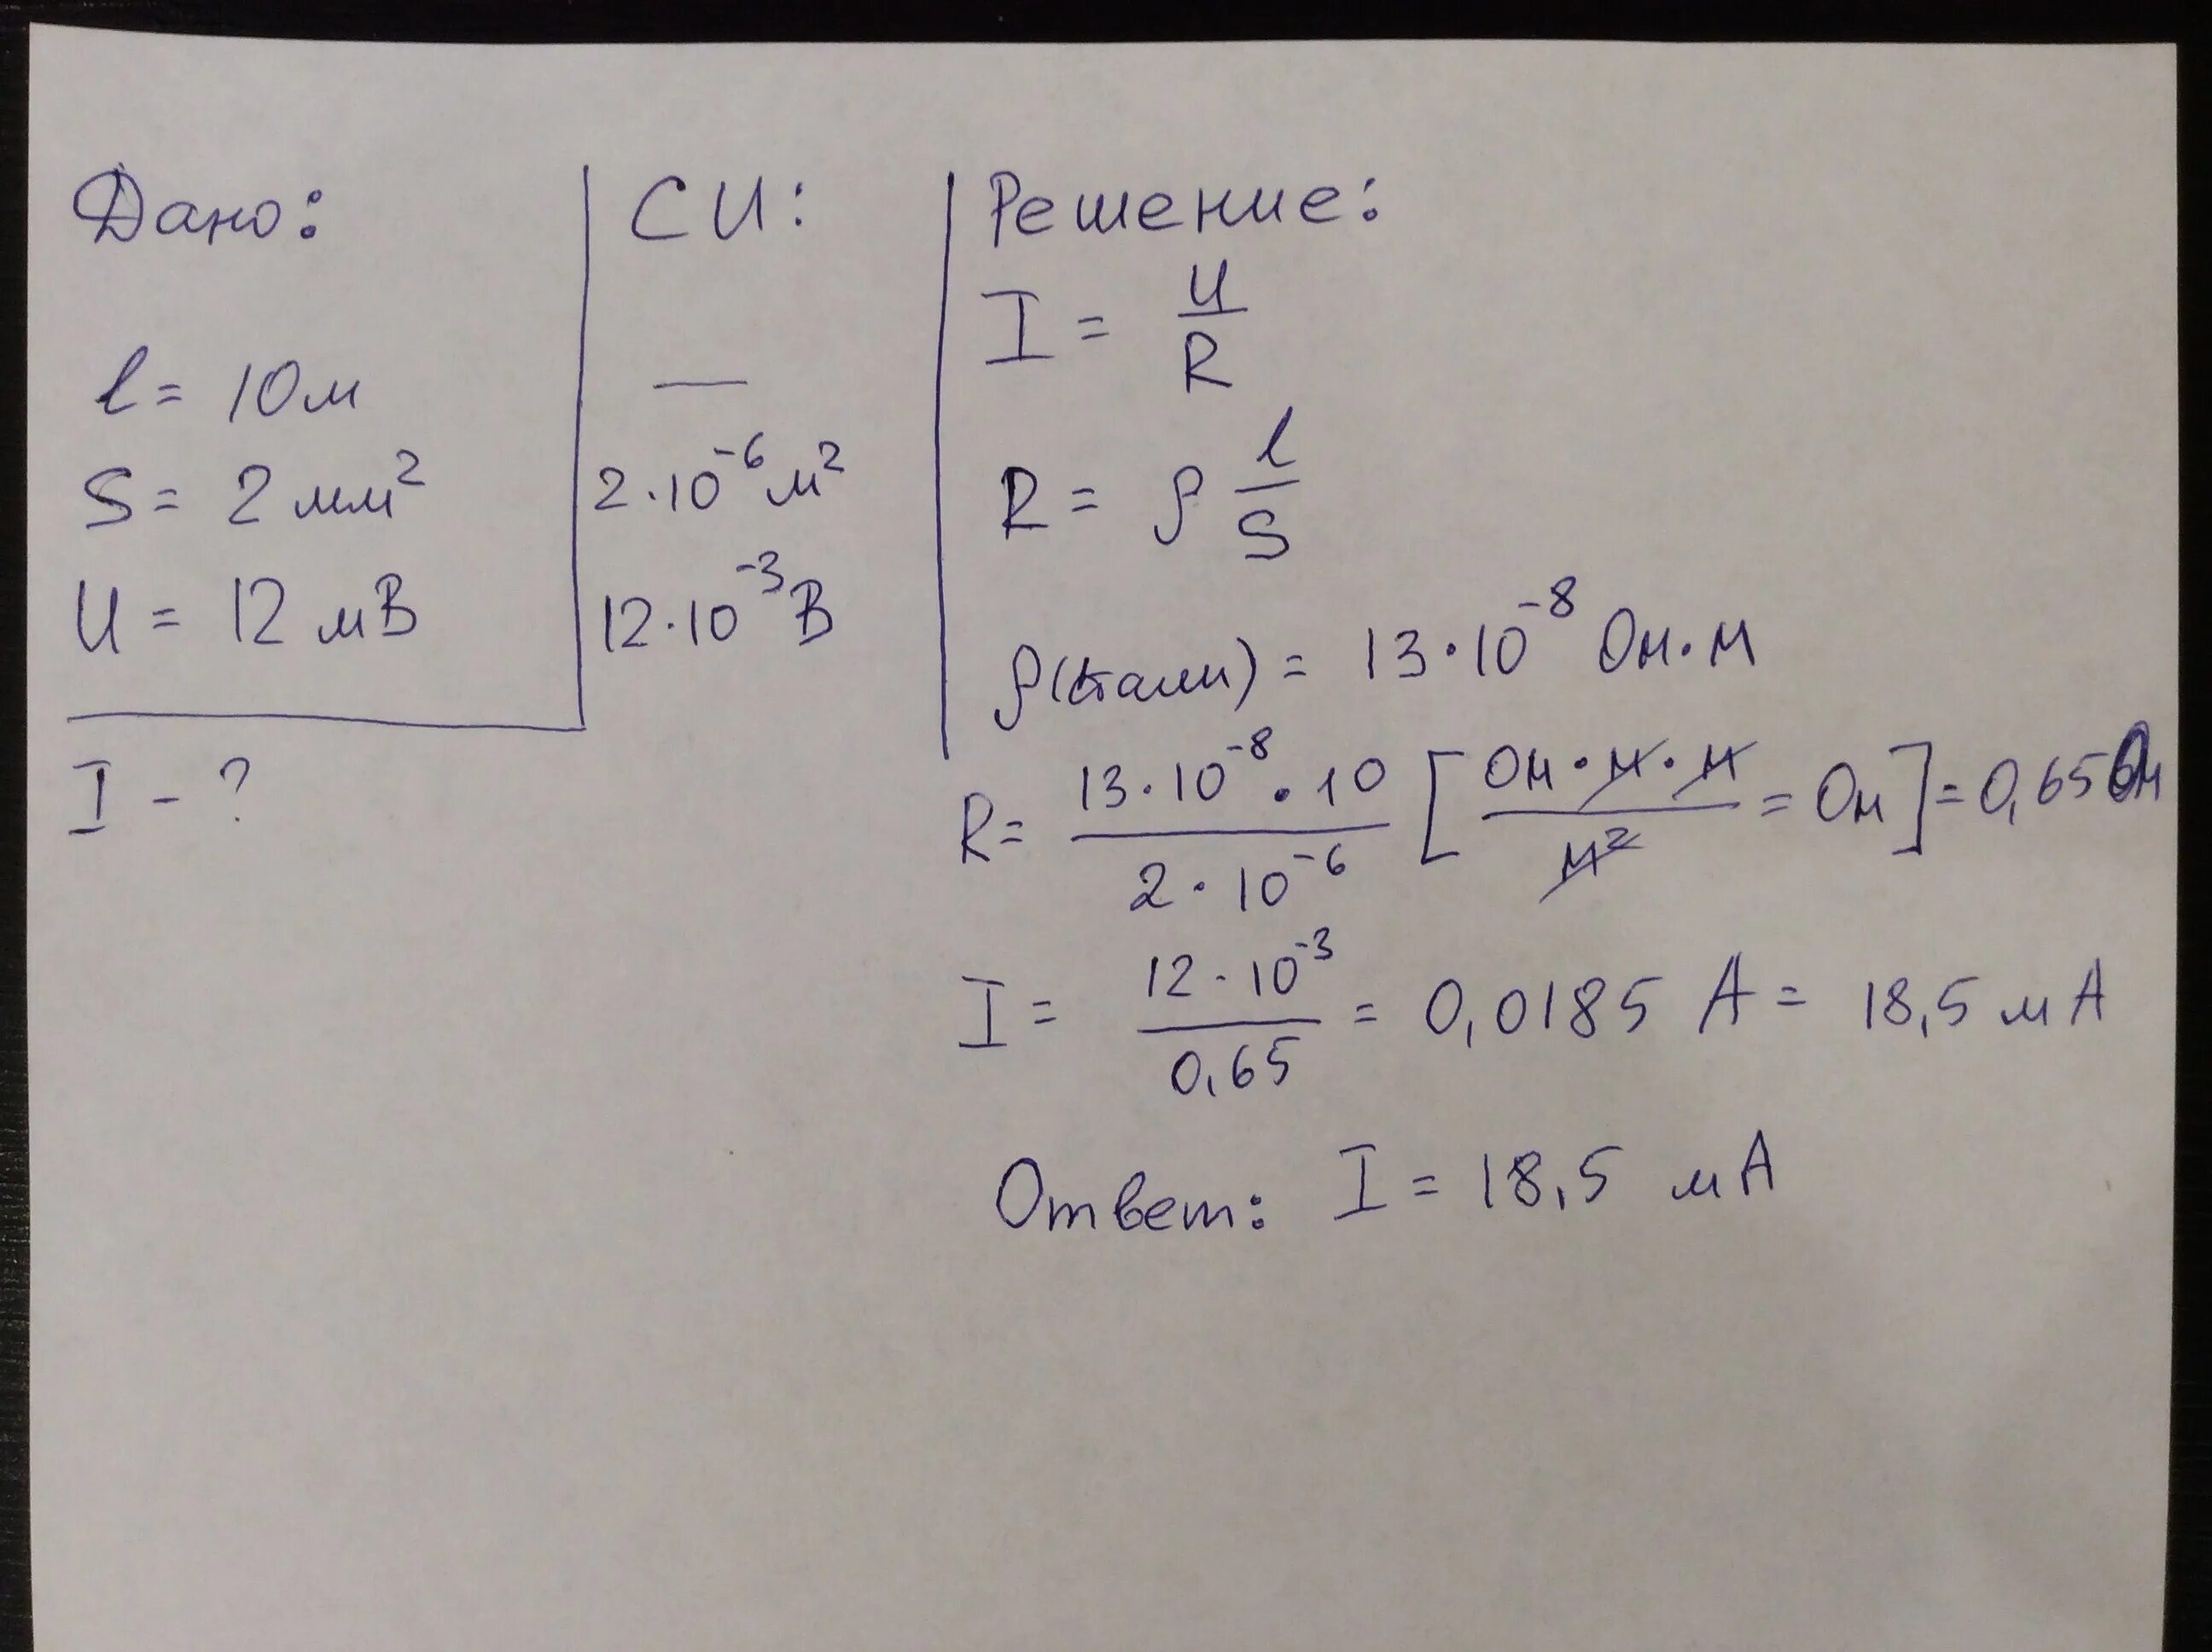 Дано:
l = 10 м
S = 2 мм²
U = 12 мВ
I - ?
СИ:
—
2·10⁻⁶ м²
12·10⁻³ В
Решение:
I = U/R
R = ρ l/S
ρ(стали) = 13·10⁻⁸ Ом·м
R = 13·10⁻⁸·10 / 2·10⁻⁶ [Ом·м·м / м² = Ом] = 0,65 Ом
I = 12·10⁻³ / 0,65 = 0,0185 А = 18,5 мА
Ответ: I = 18,5 мА